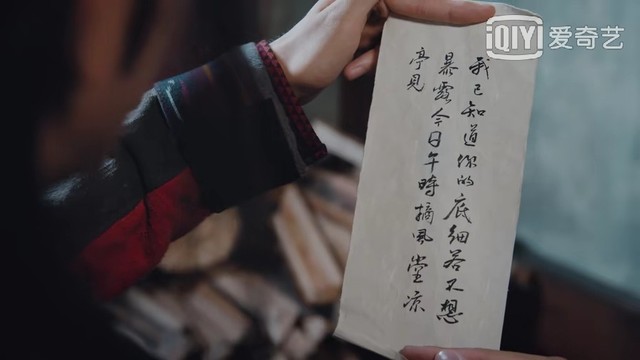 iQIYI 爱奇艺
我已知道你的底细若不想
暴露今日午時摘风堂凉
亭见